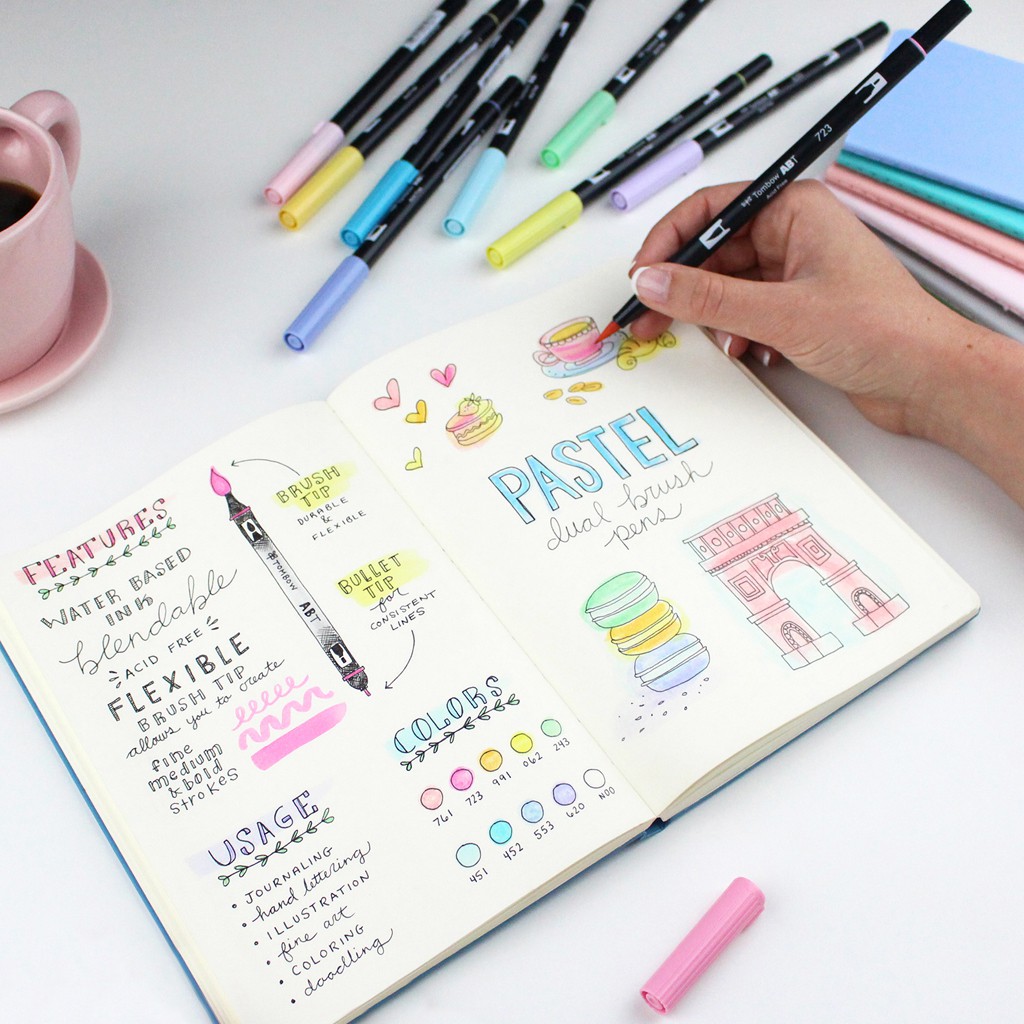 FEATURES
WATER BASED
INK
blendable
ACID FREE
FLEXIBLE
BRUSH TIP
allows you to create
fine
medium
& bold
strokes
USAGE
• JOURNALING
• hand lettering
• ILLUSTRATION
• fine art
• COLORING
• doodling
BRUSH
TIP
DURABLE
&
FLEXIBLE
TOMBOW ABT
BULLET
TIP
for
CONSISTENT
LINES
COLORS
761 723 991 062 243
451 452 553 620 N00
PASTEL
dual brush
pens
Tombow ABT
Acid Free
723